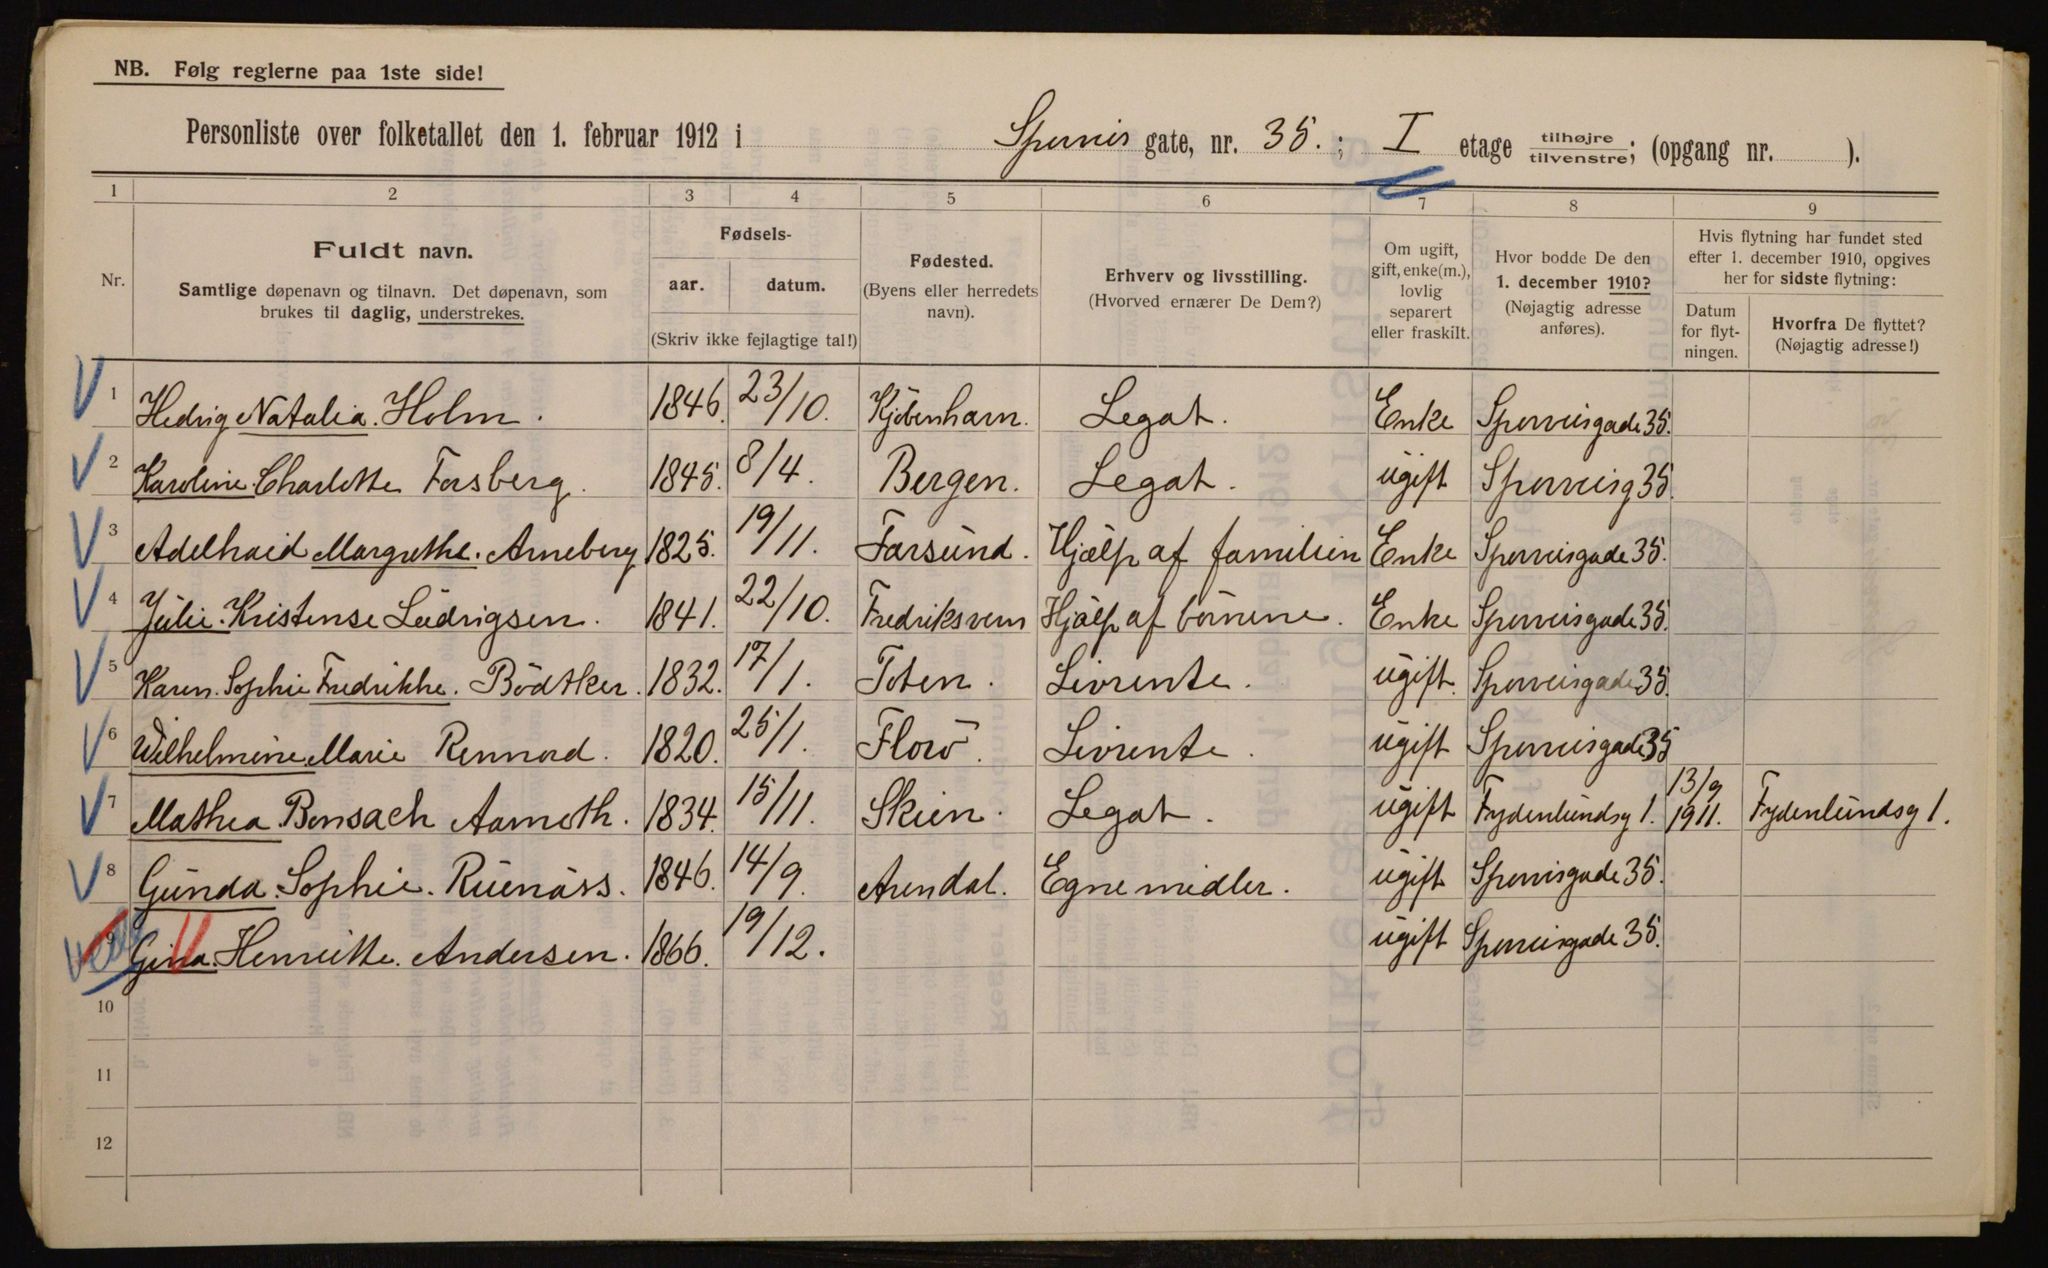 NB. Følg reglerne paa 1ste side!
Personliste over folketallet den 1. februar 1912 i Sporveis gate, nr. 35. ; I etage tilhøjre/tilvenstre; (opgang nr. ).
1 2 3 4 5 6 7 8 9
Nr.
Fuldt navn.
Samtlige døpenavn og tilnavn. Det døpenavn, som
brukes til daglig, understrekes.
Fødsels-
aar. datum.
(Skriv ikke fejlagtige tal!)
Fødested.
(Byens eller herredets
navn).
Erhverv og livsstilling.
(Hvorved ernærer De Dem?)
Om ugift,
gift, enke(m.),
lovlig
separert
eller fraskilt.
Hvor bodde De den
1. december 1910?
(Nøjagtig adresse
anføres).
Hvis flytning har fundet sted
efter 1. december 1910, opgives
her for sidste flytning:
Datum
for flyt-
ningen.
Hvorfra De flyttet?
(Nøjagtig adresse!)
1 Hedvig Natalia. Holm. 1846. 23/10. Kjöbenhavn. Legat. Enke Sporveisgade 35.
2 Karoline Charlotte Forsberg. 1845. 8/4. Bergen. Legat. ugift Sporveisg 35.
3 Adelhaid Margrethe. Arneberg 1825. 19/11. Farsund. Hjælp af familien Enke Sporveisgade 35.
4 Julie. Kristense Ludvigsen. 1841. 22/10. Fredriksværn Hjælp af börnene. Enke Sporveisgade 35.
5 Karen. Sophie Fredrikke. Bödtker. 1832. 17/1. Toten. Livrente. ugift. Sporveisgade 35.
6 Wilhelmine Marie Rennord. 1820. 25/1. Florö. Livrente. ugift Sporveisgade 35
7 Mathea Bonsach Aamoth. 1834. 15/11. Skien. Legat. ugift Frydenlundsg 1. 13/9 1911. Frydenlundsg 1.
8 Gunda. Sophie. Ruenäss. 1846. 14/9. Arendal. Egne midler. ugift Sporvisgade 35.
9 Gina. Henriette. Andersen. 1866. 19/12. ugift Sporveisgade 35.
10
11
12